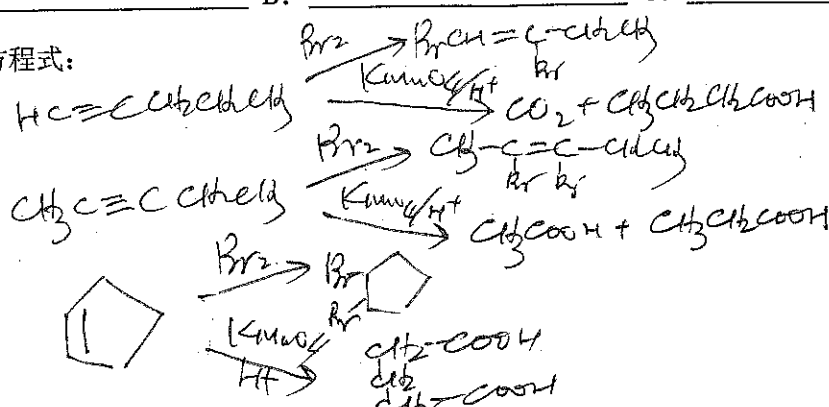 B.
方程式:
Br2 → BrCH=C-CH2CH3
Br
HC≡CCH2CH2CH3 KMnO4/H+ → CO2 + CH3CH2CH2COOH
Br2 → CH3-C=C-CH2CH3
Br Br
CH3C≡CCH2CH3 KMnO4/H+ → CH3COOH + CH3CH2COOH
Br2 → Br
Br
KMnO4 CH2-COOH
H+ → CH2
CH2-COOH